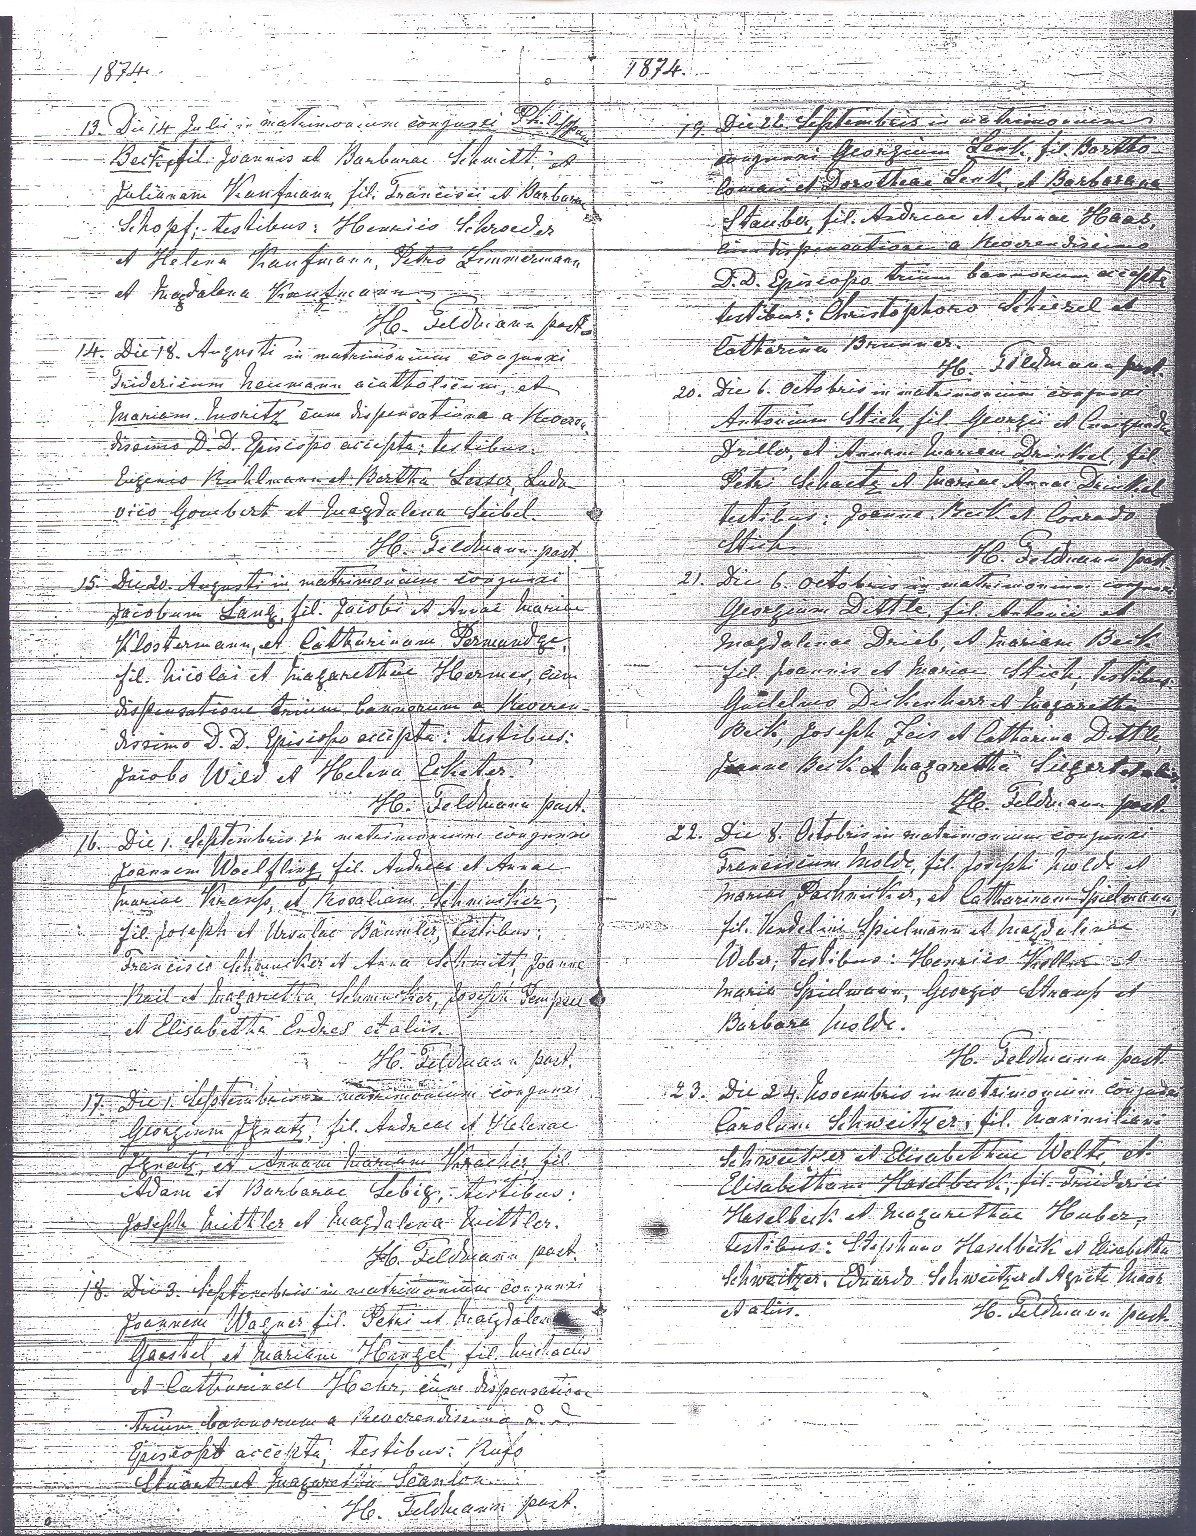 1874.
13. Die 14 Julii in matrimonium conjunxi Philippum
Beck, fil. Joannis et Barbarae Schmitt, et
Julianam Kaufmann, fil. Francisci et Barbarae
Schopf; testibus: Henrico Schroeder
et Helena Kaufmann, Petro Zimmermann
et Magdalena Kaufmann.
H. Feldmann past.
14. Die 18. Augusti in matrimonium conjunxi
Fridericum Neumann acatholicum, et
Mariam Moritz cum dispensatione a Reveren-
dissimo D. D. Episcopo accepta; testibus:
Eugenio Kuhlmann et Bertha Lesser, Ludo-
vico Gombert et Magdalena Seibel.
H. Feldmann past.
15. Die 20. Augusti in matrimonium conjunxi
Jacobum Lang, fil. Jacobi et Annae Mariae
Klostermann, et Catharinam
fil. Nicolai et Magarethae Hermes, cum
dispensatione trium bannorum a Reveren-
dissimo D. D. Episcopo accepta: testibus:
Jacobo Wild et Helena
H. Feldmann past.
16. Die 1. Septembris in matrimonium conjunxi
Joannem Woelfling, fil. Andreae et Annae
Mariae Krauss, et Rosaliam Schmucker,
fil. Joseph et Ursulae Bäumler, testibus:
Francisco Schmucker et Anna Schmitt, Joanne
Rail et Magaretha Schmucker, Joseph
et Elisabetha Endres et aliis.
H. Feldmann past.
17. Die 1. Septembris in matrimonium conjunxi
Georgium Ignatz, fil. Andreae et Helenae
Ignatz, et Annam Mariam Kracher, fil.
Adam et Barbarae Lebig, testibus:
Joseph Mithler et Magdalena Mittler.
H. Feldmann past.
18. Die 3. Septembris in matrimonium conjunxi
Joannem Wagner fil. Petri et Magdalenae
et Mariam Hengel, fil. Michaelis
et Catharinae Hehr, cum dispensatione
trium bannorum a Reverendissimo D. D.
Episcopo accepta, testibus: Rufo
Stuart et Magaretha Scanlon.
H. Feldmann past.
1874.
19. Die 22. Septembris in matrimonium
conjunxi Georgium Lenk, fil. Bartho-
lomaei et Dorotheae Lenk et Barbaram
Stauber, fil. Andreae et Annae Haas,
cum dispensatione a Reverendissimo
D. D. Episcopo trium bannorum accepta
testibus: Christophoro Schiezel et
Catharina Brunner.
H. Feldmann past.
20. Die 6. Octobris in matrimonium conjunxi
Antonium Stich, fil. Georgii et
Driller, et Annam Mariam Drinkel, fil.
Petri Schaetz et Mariae Annae Drinkel
testibus: Joanne Beck et Conrado
Stich.
H. Feldmann past.
21. Die 6. Octobris in matrimonium conjunxi
Georgium Dittle, fil. Antonii et
Magdalenae Drieb, et Mariam Beck
fil. Joannis et Mariae Stich, testibus:
Guilelmo Dickenherr et Magaretha
Beck, Joseph Zeis et Catharina Dittle,
Joanne Beck et Magaretha Siegert et aliis.
H. Feldmann past.
22. Die 8. Octobris in matrimonium conjunxi
Franciscum Nolde, fil. Josephi Nolde et
Mariae et Catharinam Spielmann,
fil. Vendelini Spielmann et Magdalenae
Weber; testibus: Henrico Koller et
Maria Spielmann, Georgio Strauss et
Barbara Nolde.
H. Feldmann past.
23. Die 24. Novembris in matrimonium conjunxi
Carolum Schweitzer, fil. Maximiliani
Schweitzer et Elisabethae Welte, et
Elisabetham Haselbeck, fil. Friderici
Haselbeck et Magarethae Huber,
testibus: Stephano Haselbeck et Elisabetha
Schweitzer, Eduardo Schweitzer et Agneti Maar
et aliis.
H. Feldmann past.